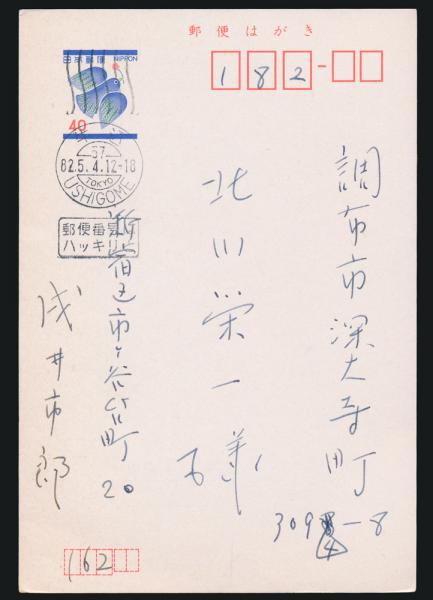 郵便はがき
182-
日本郵便 NIPPON
40
牛込
57
82.5.4.12-18
TOKYO
USHIGOME
郵便番号
ハッキリ
調布市深大寺町
3094-8
北川栄一様
新宿区市ヶ谷台町20
浅井市郎
162